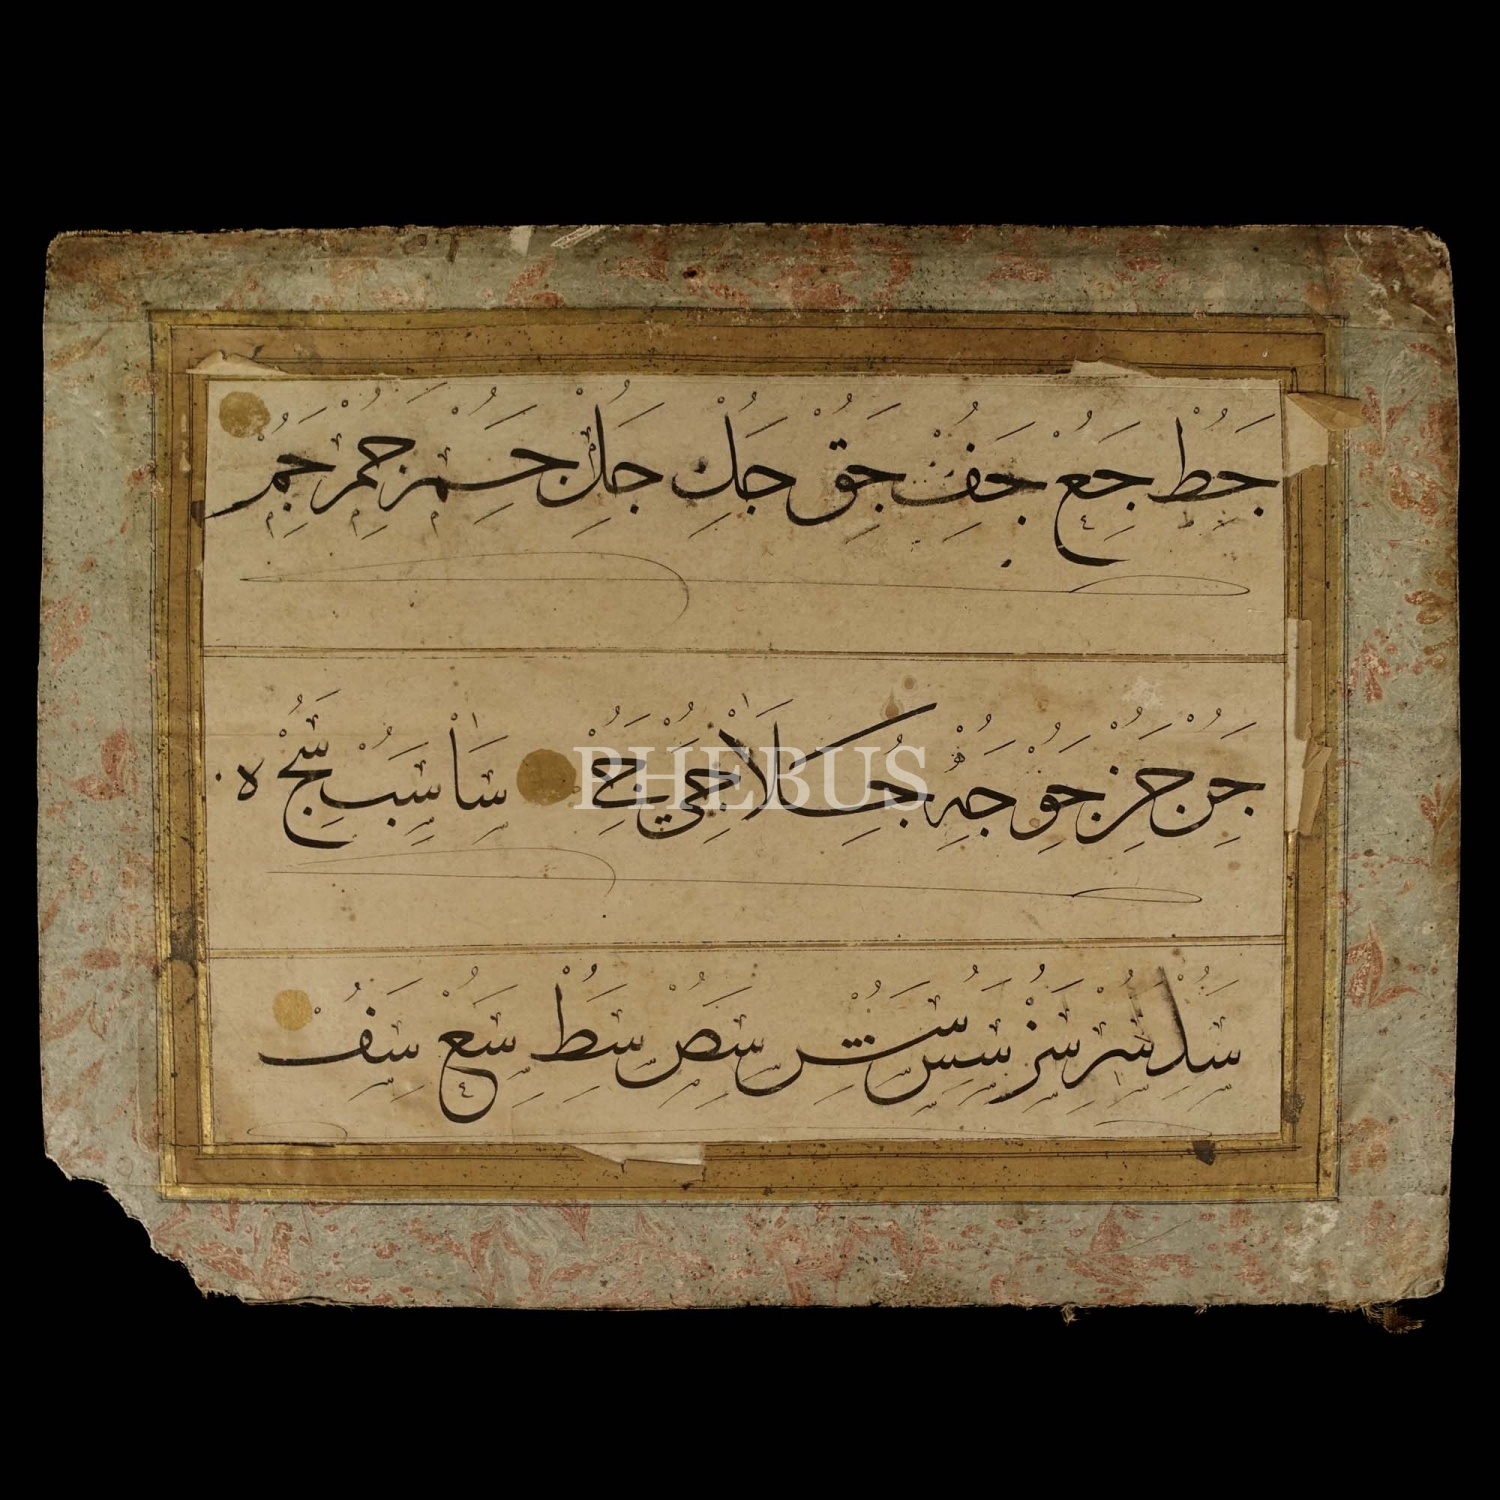 جط جع جف جق جك جل جم جم جم
جن جن جو جه جكلا جى جے سا سب سج ه
سد سر سز سس سش سص سط سع سف
PHEBUS